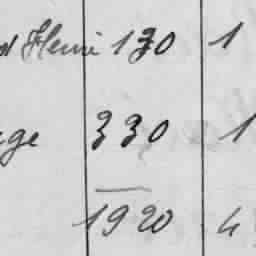 Henri 130 1
ge 330 1
1920 4